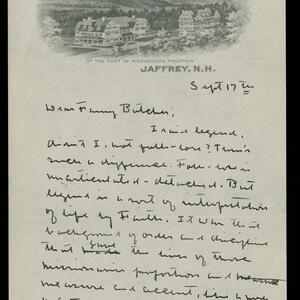 AT THE FOOT OF MONADNOCK MOUNTAIN
JAFFREY, N.H.
Sept 17th
Dear Fanny Butcher:
I said legend,
didn't I, not folk-lore? There's
such a difference. Folk-lore is
unarticulated - detached. But
legend is a sort of interpretation
of life by Faith. It was that
background of order and discipline
that gave made the lives of those
missionaries proportion and measure
measure and accent, like a